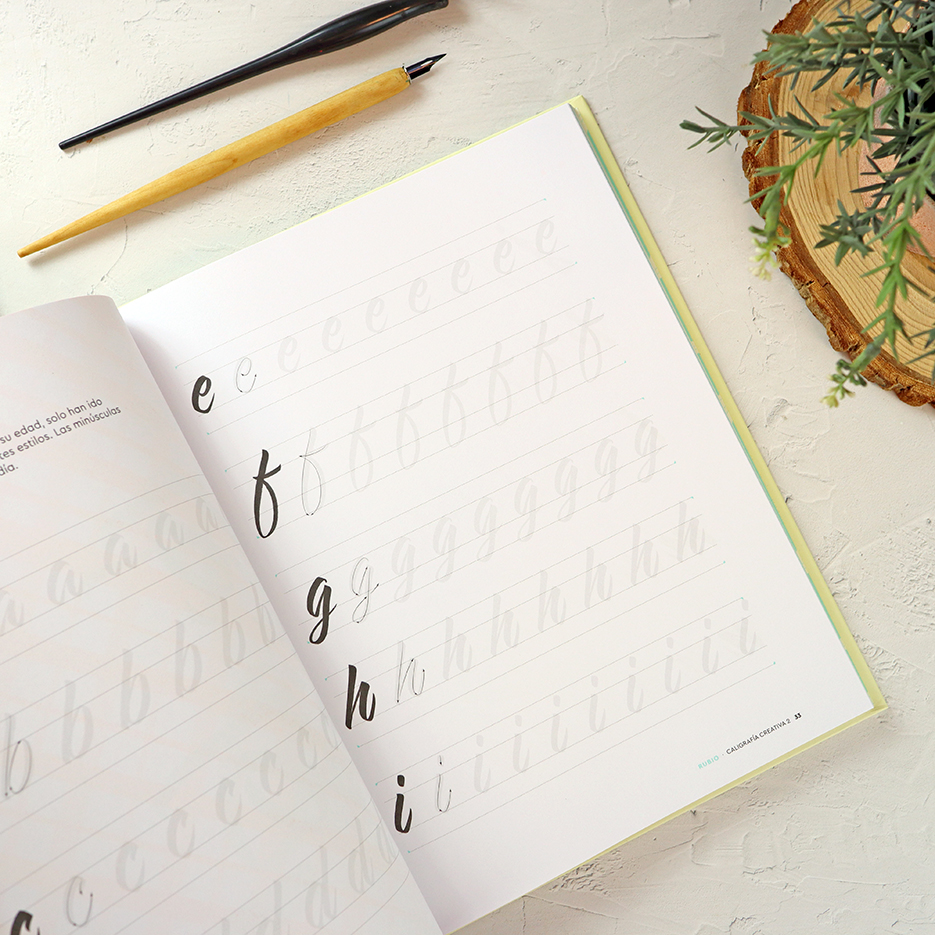 su edad, solo han ido
tes estilos. Las minúsculas
día.
a a a a a
b b b b b b
c c c c c c c c
d d d d
e e e e e e e e e
f f f f f f f f
g g g g g g g g g
h h h h h h h h
i i i i i i i i i i
RUBIO · CALIGRAFÍA CREATIVA 2 33